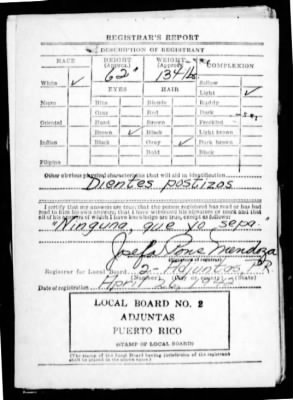 REGISTRAR'S REPORT
DESCRIPTION OF REGISTRANT
RACE HEIGHT (Approx.) WEIGHT (Approx.) COMPLEXION
62" 134 lb
White ✓ Sallow
EYES HAIR Light ✓
Negro Blue Blonde Ruddy
Gray Red Dark
Oriental Hazel Brown Freckled
Brown ✓ Black Light brown
Indian Black Gray ✓ Dark brown
Bald Black
Filipino
Other obvious physical characteristics that will aid in identification
Dientes postizos
I certify that my answers are true; that the person registered has read or has had
read to him his own answers; that I have witnessed his signature or mark and that
all of his answers of which I have knowledge are true, except as follows:
"Ninguna, que yo sepa."
Mendoza
(Signature of registrar)
Registrar for Local Board 2 - Adjuntas, P.R.
(Number) (City or county) (State)
Date of registration April 26, 1942
LOCAL BOARD NO. 2
ADJUNTAS
PUERTO RICO
(STAMP OF LOCAL BOARD)
(The stamp of the Local Board having jurisdiction of the registrant
shall be placed in the above space.)